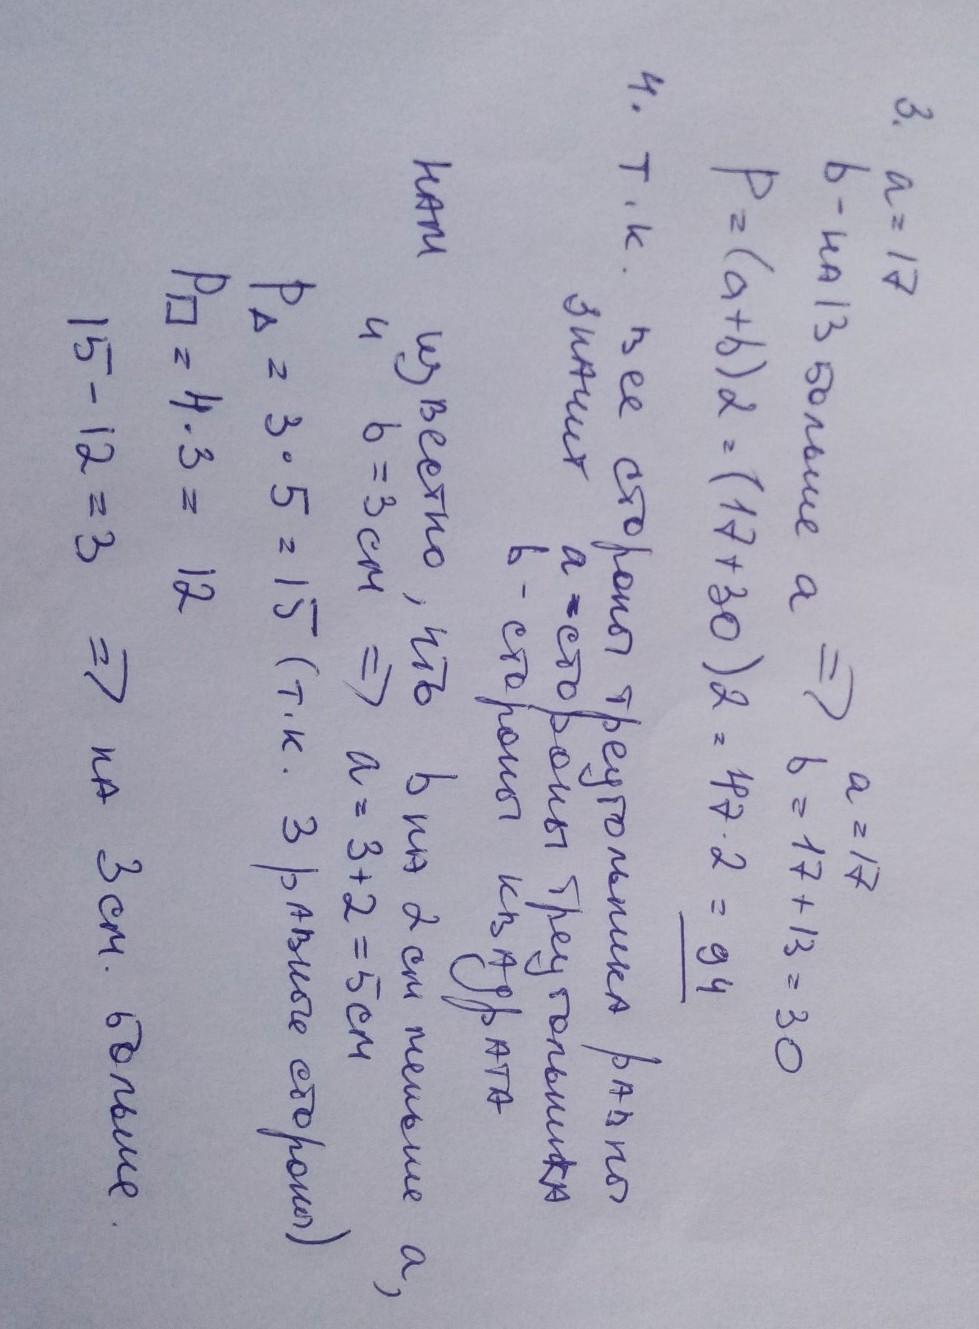 3. a = 17
b - на 13 больше a => a = 17
b = 17 + 13 = 30
P = (a+b)2 = (17+30)2 = 47·2 = 94
4. Т.к. все стороны треугольника равны
значит a - стороны треугольника
b - стороны квадрата
нам известно, что b на 2 см меньше a,
и b = 3 см => a = 3+2 = 5 см
P△ = 3·5 = 15 (т.к. 3 равные стороны)
P□ = 4·3 = 12
15 - 12 = 3 => на 3 см. больше.